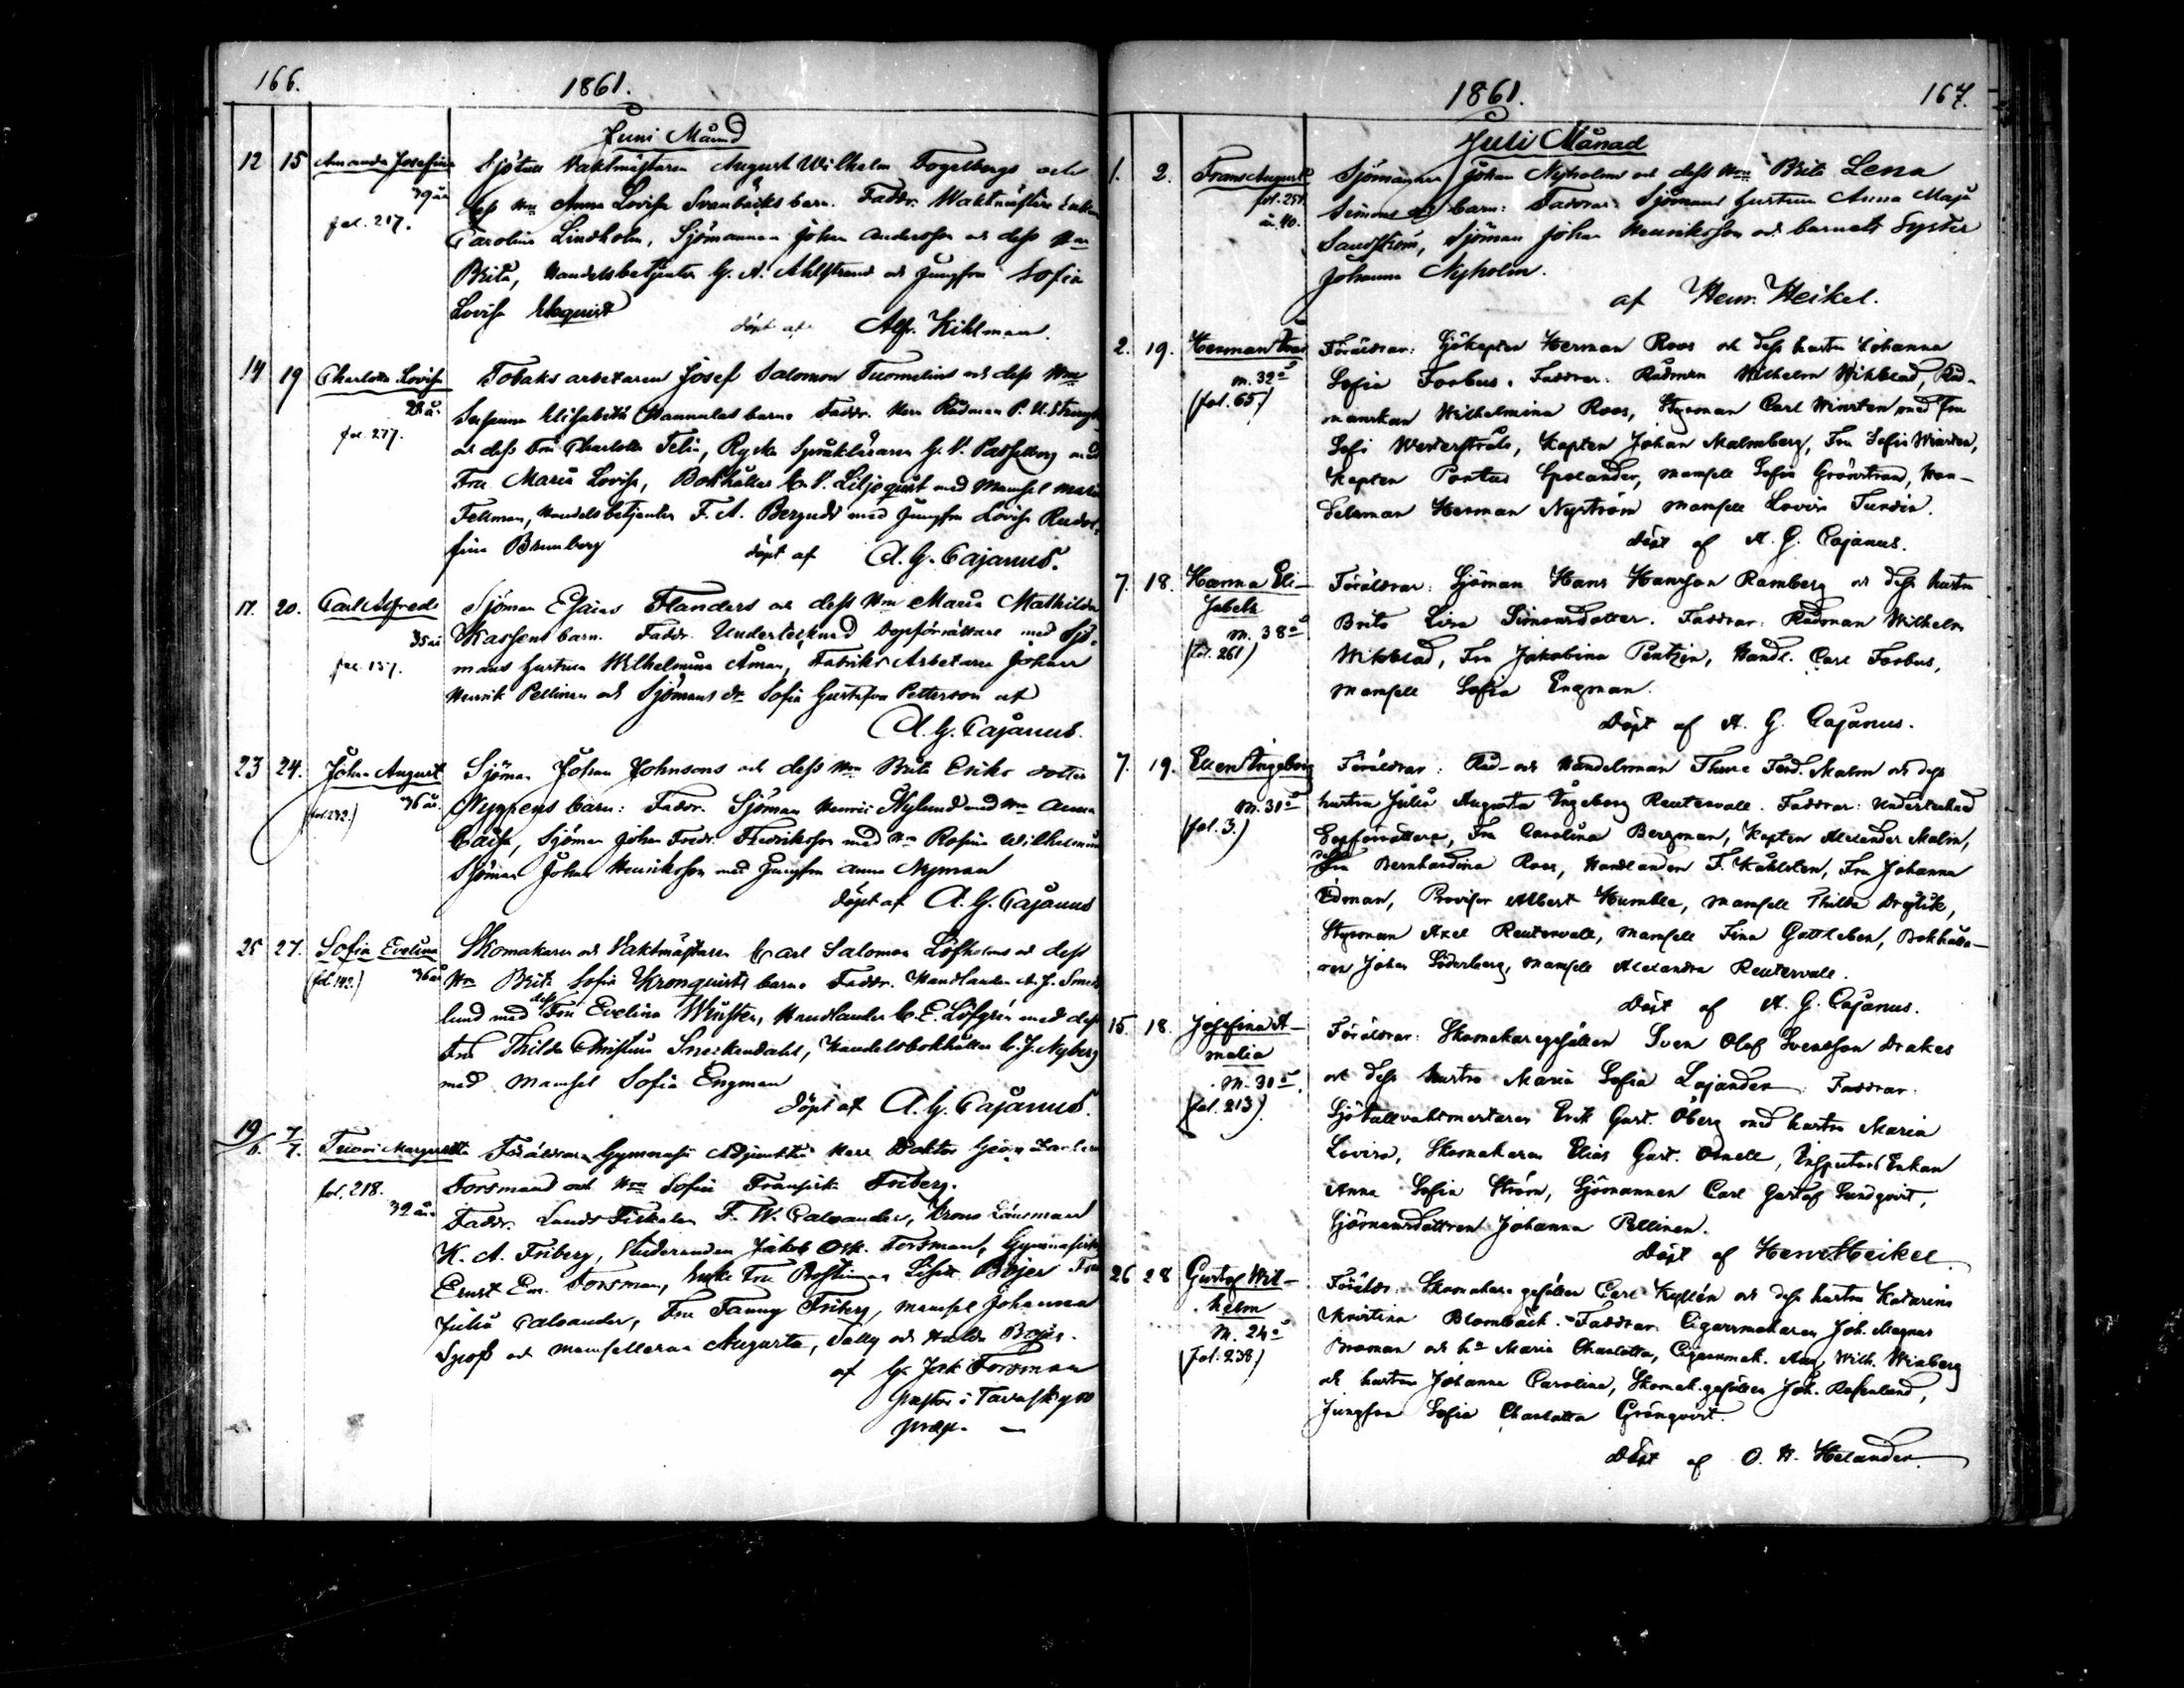 166.
1861.
Juni Månad
12 15 Amanda Josefina Sjötull Vaktmästaren August Wilhelm Fogelbergs och
39 år dess Hu Anna Lovisa Svanbäcks barn. Faddr. Waktmästare Enkan
fol. 217. Carolina Lindholm, Sjömannen Johan Andersson och dess Hu
Brita, Handelsbetjenten G. A. Ahlstrand och Jungfru Sofia
Lovisa
döpt af Alfr. Kihlman.
14 19 Charlotta Lovisa Tobaksarbetaren Josef Salomon Tuomelins och dess Hu
28 år. Susanna Elisabeth Hannulas barn. Faddr. Herr Rådman P. U.
fol. 277. och dess Fru Charlotta, Ryska Språkläraren G. V.
Fru Maria Lovisa, Bokhållar C. V. Liljeqvist med Mamsel Maria
Fellman, Handelsbetjenten F. A. Bergudd med Jungfru Lovisa
fina Brunberg döpt af A. G. Cajanus.
17. 20. Carl Alfred Sjöman Esaias Flanders och dess Hu Maria Mathilda
35 år Kassens barn. Faddr. Undertecknad Dopförrättare med Sjö-
fol. 157. mans hustrun Wilhelmina Åman, Fabriks Arbetaren Johan
Henrik Pellinen och Sjömans dr Sofia Gustafva Petterson af
A. G. Cajanus.
23 24. Johan August Sjöman Johan Johnsons och dess Hu Brita Eriks dotter
36 år. Nyppens barn: Faddr. Sjöman Henric Nylund med Hu Anna
(fol. 272.) Caisa, Sjöman Johan Fredr. Fredriksson med Hu Rosina Wilhelmina
Sjöman Johan Henriksson med Jungfru Anna Nyman
döpt af A. G. Cajanus
25 27. Sofia Evelina Skomakaren och Vaktmästaren Carl Salomon Löfholms och dess
(fol. 142.) 36 år Hu Brita Sofia Kronquists barn. Faddr. Handlanden A. J.
lund med dess Fru Evelina Winsten, Handlanden C. E. Löfgrén med dess
Fru Thilda Christina Sneckendahl, Handelsbokhållar C. J. Nyberg
med Mamsel Sofia Engman
döpt af A. G. Cajanus.
19/6. 7/7. Margaretha Föräldrar Gymnasii Adjunkten Herr Doktor Georg
fol. 218. Forsmand och Hu Sofia Fransiska Friberg.
32 år. Faddr. Lands Fiskalen F. W. Calamnder, Krono Länsman
K. A. Friberg, Studeranden Jakob Osk. Forsman,
Ernst Em. Forsman, Enke Fru Prostinnan Bojer Fru
Julia, Fru Fanny Friberg, Mamsel Johanna
och Mamsellerna Augusta, Sally och Hulda
af G. Jak. Forsman
Pastor i Tavastkyro
præp.
1861.
167.
Juli Månad
1. 2. Frans August Sjömannen Johan Nyholms och dess Hu Brita Lena
fol. 251. Simons dr barn: Faddrar: Sjömans hustrun Anna Maja
år 40. Sandström, Sjöman Johan Henriksson och barnets Syster
Johanna Nyholm.
af Henr. Heikel.
2. 19. Herman Föräldrar: Sjökapten Herman Roos och dess hustru Johanna
m. 32 å Sofia Forbus. Faddrar: Rådman Wilhelm Wikblad, Råd-
(fol. 65.) manskan Wilhelmina Roos, Styrman Carl Winsten med Fru
Sofi Westerstråle, Kapten Johan Malmberg, Fru Sofia Winsten,
Kapten Pontus Spolander, Mamsell Sofia Grönstrand, Han-
delsman Herman Nyström Mamsell Lovisa Tundin.
Döpt af A. G. Cajanus.
7. 18. Hanna Eli- Föräldrar: Sjöman Hans Hansson Ramberg och dess hustru
sabeth Brita Lisa Simonsdotter. Faddrar: Rådman Wilhelm
m. 38 å Wikblad, Fru Jakobina Pentzin, Handl. Carl Forbus,
(fol. 261) Mamsell Sofia Engman.
Döpt af A. G. Cajanus.
7. 19. Ellen Ingeborg Föräldrar: Råd- och Handelsman Thure Ferd. Malm och dess
m. 31 å hustru Julia Augusta Ingeborg Reutervall. Faddrar: Undertecknad
(fol. 3.) Dopförrättare, Fru Carolina Bergman, Kapten Alexander Malm,
Fru Bernhardina Roos, Handlanden F. Kahlsten, Fru Johanna
Edman, Provisor Albert Humble, Mamsell Thilda
Styrman Axel Reutervall, Mamsell Fina Gottleben, Bokhålla-
ren Johan Söderberg, Mamsell Alexandra Reutervall.
Döpt af A. G. Cajanus.
15 18. Josefina A- Föräldrar: Skomakaregesällen Sven Olof Svensson Drakes
malia och dess hustru Maria Sofia Lojander. Faddrar:
m. 31 å. Sjötullvaktmästaren Erik Gust. Öberg med hustru Maria
(fol. 213). Lovisa, Skomakaren Elias Gust. Ornell, Inspectors Enkan
Anna Sofia Ström, Sjömannen Carl Gustaf Sundqvist,
Sjömansdottren Johanna Pellinen.
Döpt af Henr. Heikel.
26 28 Gustaf Wil- Föräldr: Skomakare gesällen Carl Kyllén och dess hustru Katarina
helm Kristina Blombäck. Faddrar: Cigarrmakaren Joh. Magnus
m. 24 å Broman och hu Maria Charlotta, Cigarrmak. Aug. Wilh. Winberg
(fol. 238) och hustru Johanna Carolina, Skomak. gesällen Joh. Rosenlund,
Jungfru Sofia Charlotta Grönqvist.
Döpt af O. H. Helander.